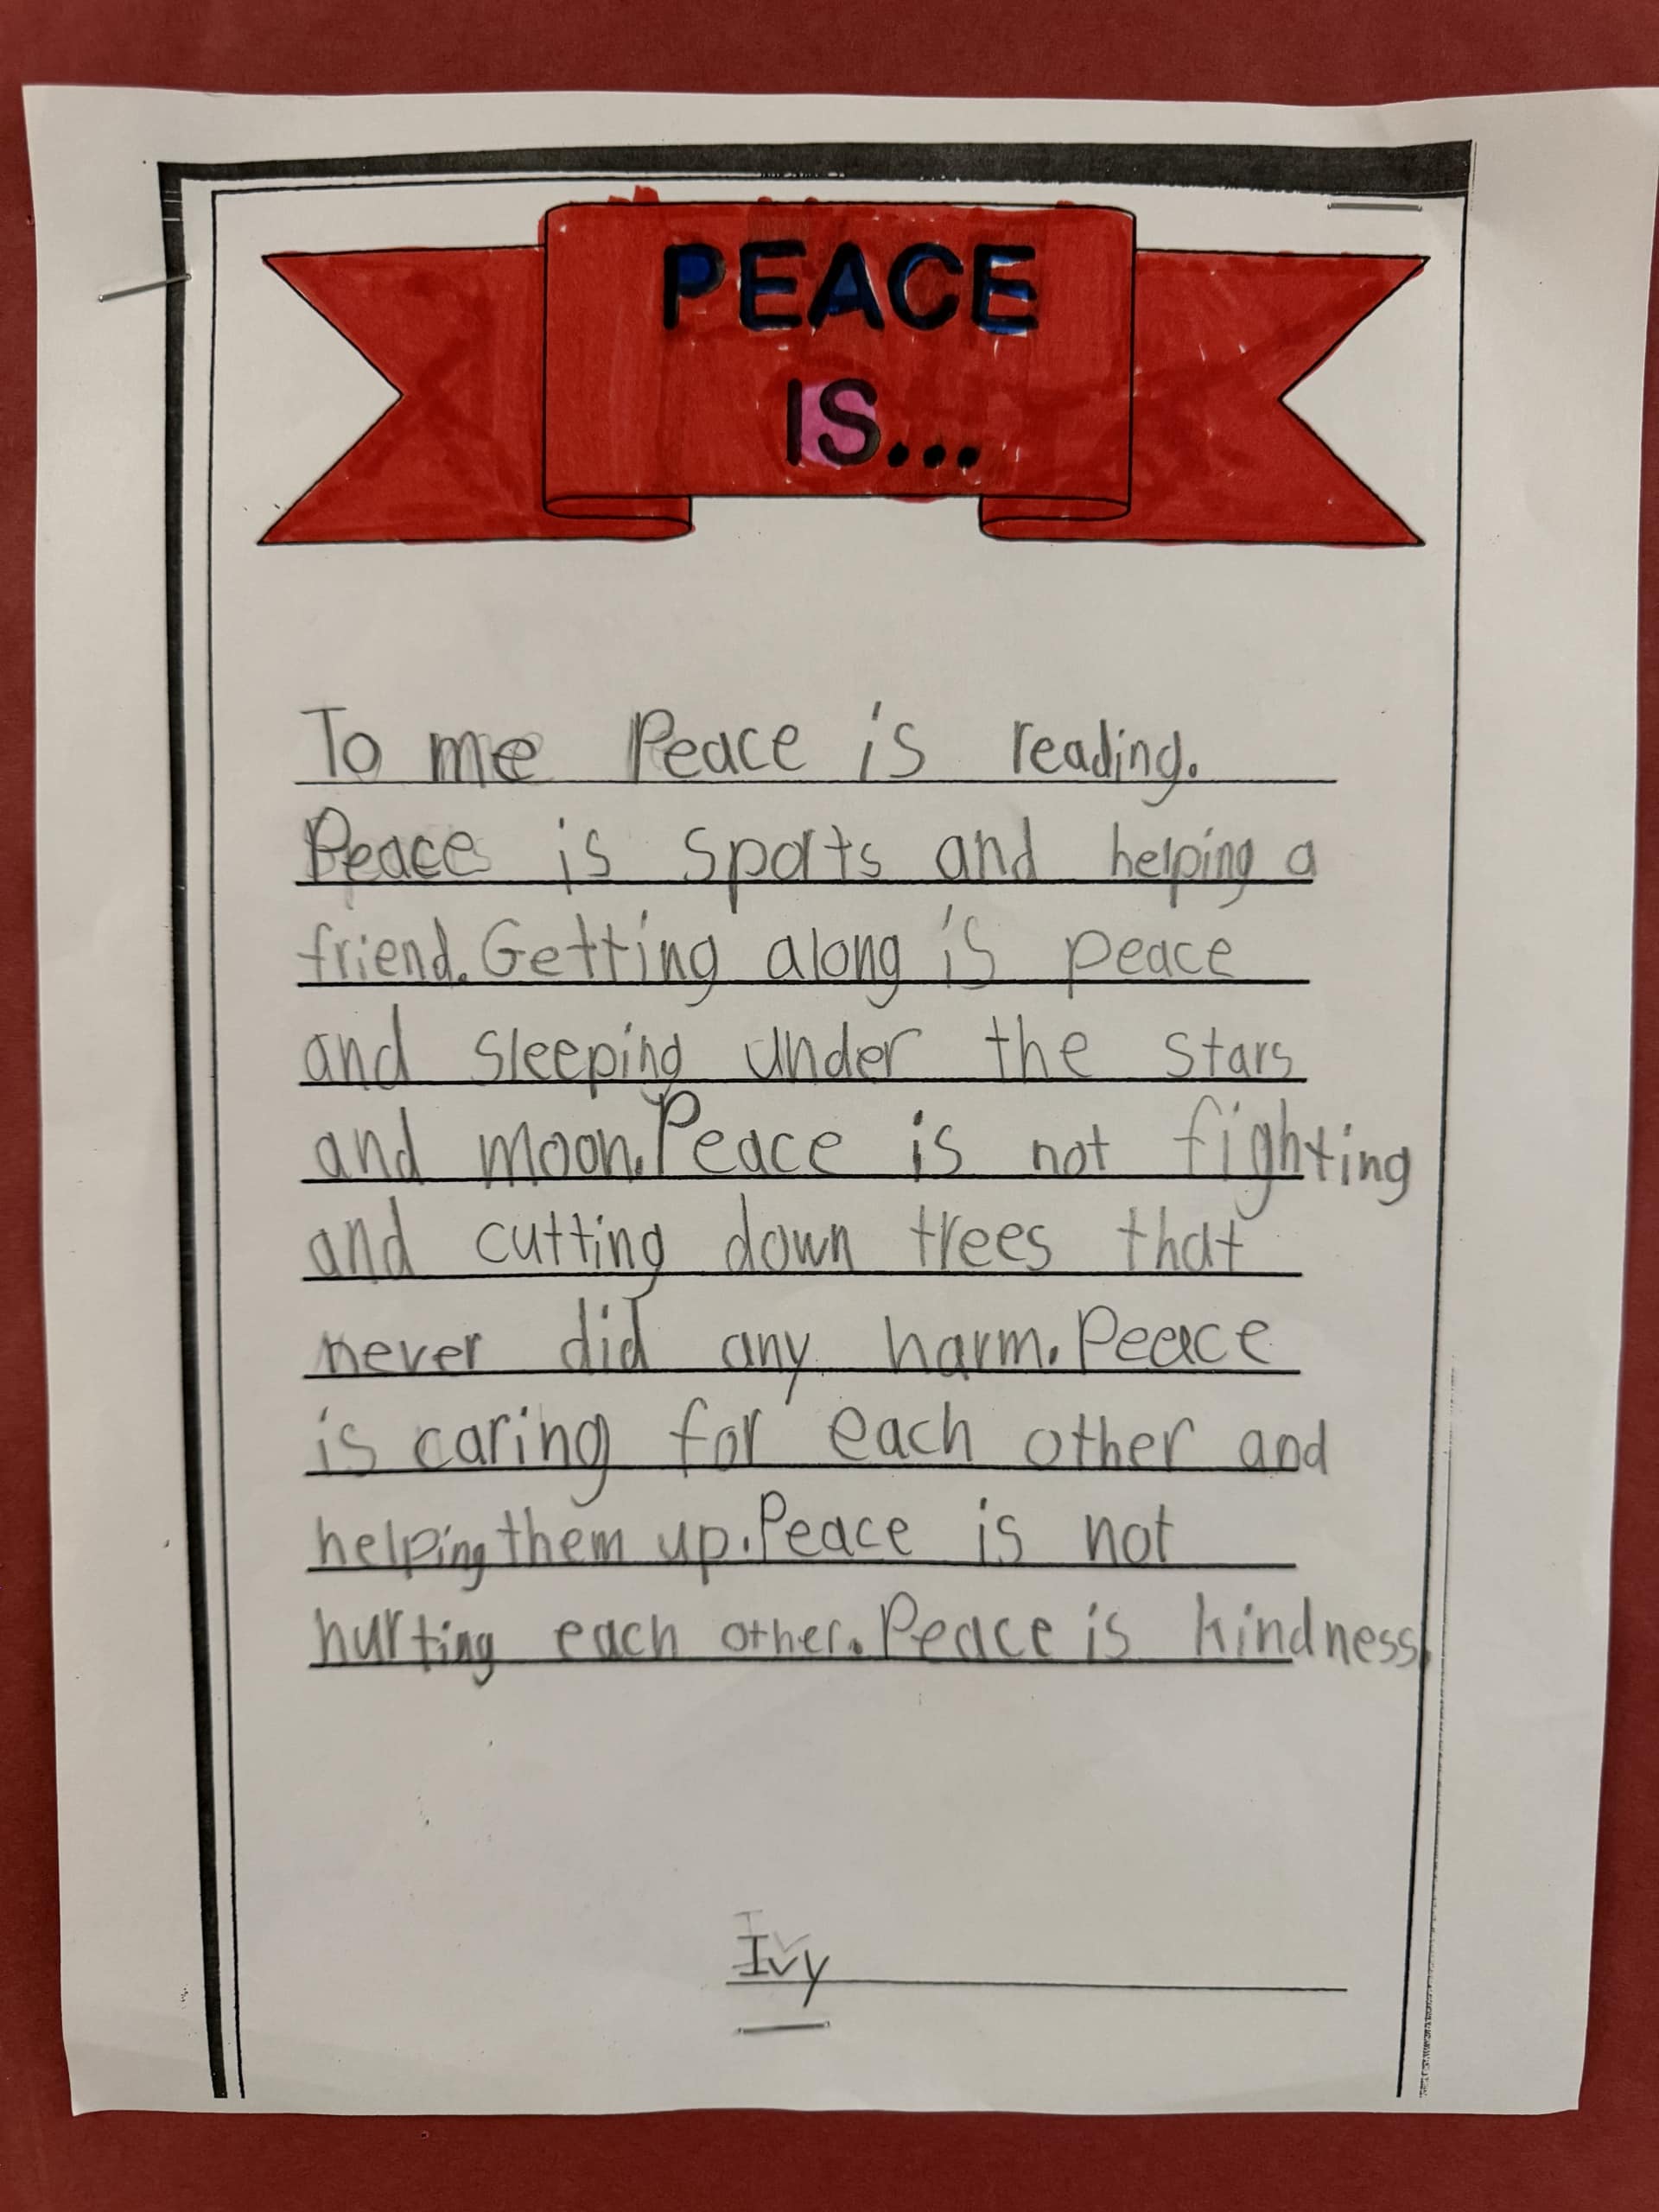 PEACE
IS...
To me Peace is reading.
Peace is sports and helping a
friend. Getting along is peace
and sleeping under the stars
and moon. Peace is not fighting
and cutting down trees that
never did any harm. Peace
is caring for each other and
helping them up. Peace is not
hurting each other. Peace is kindness.
Ivy